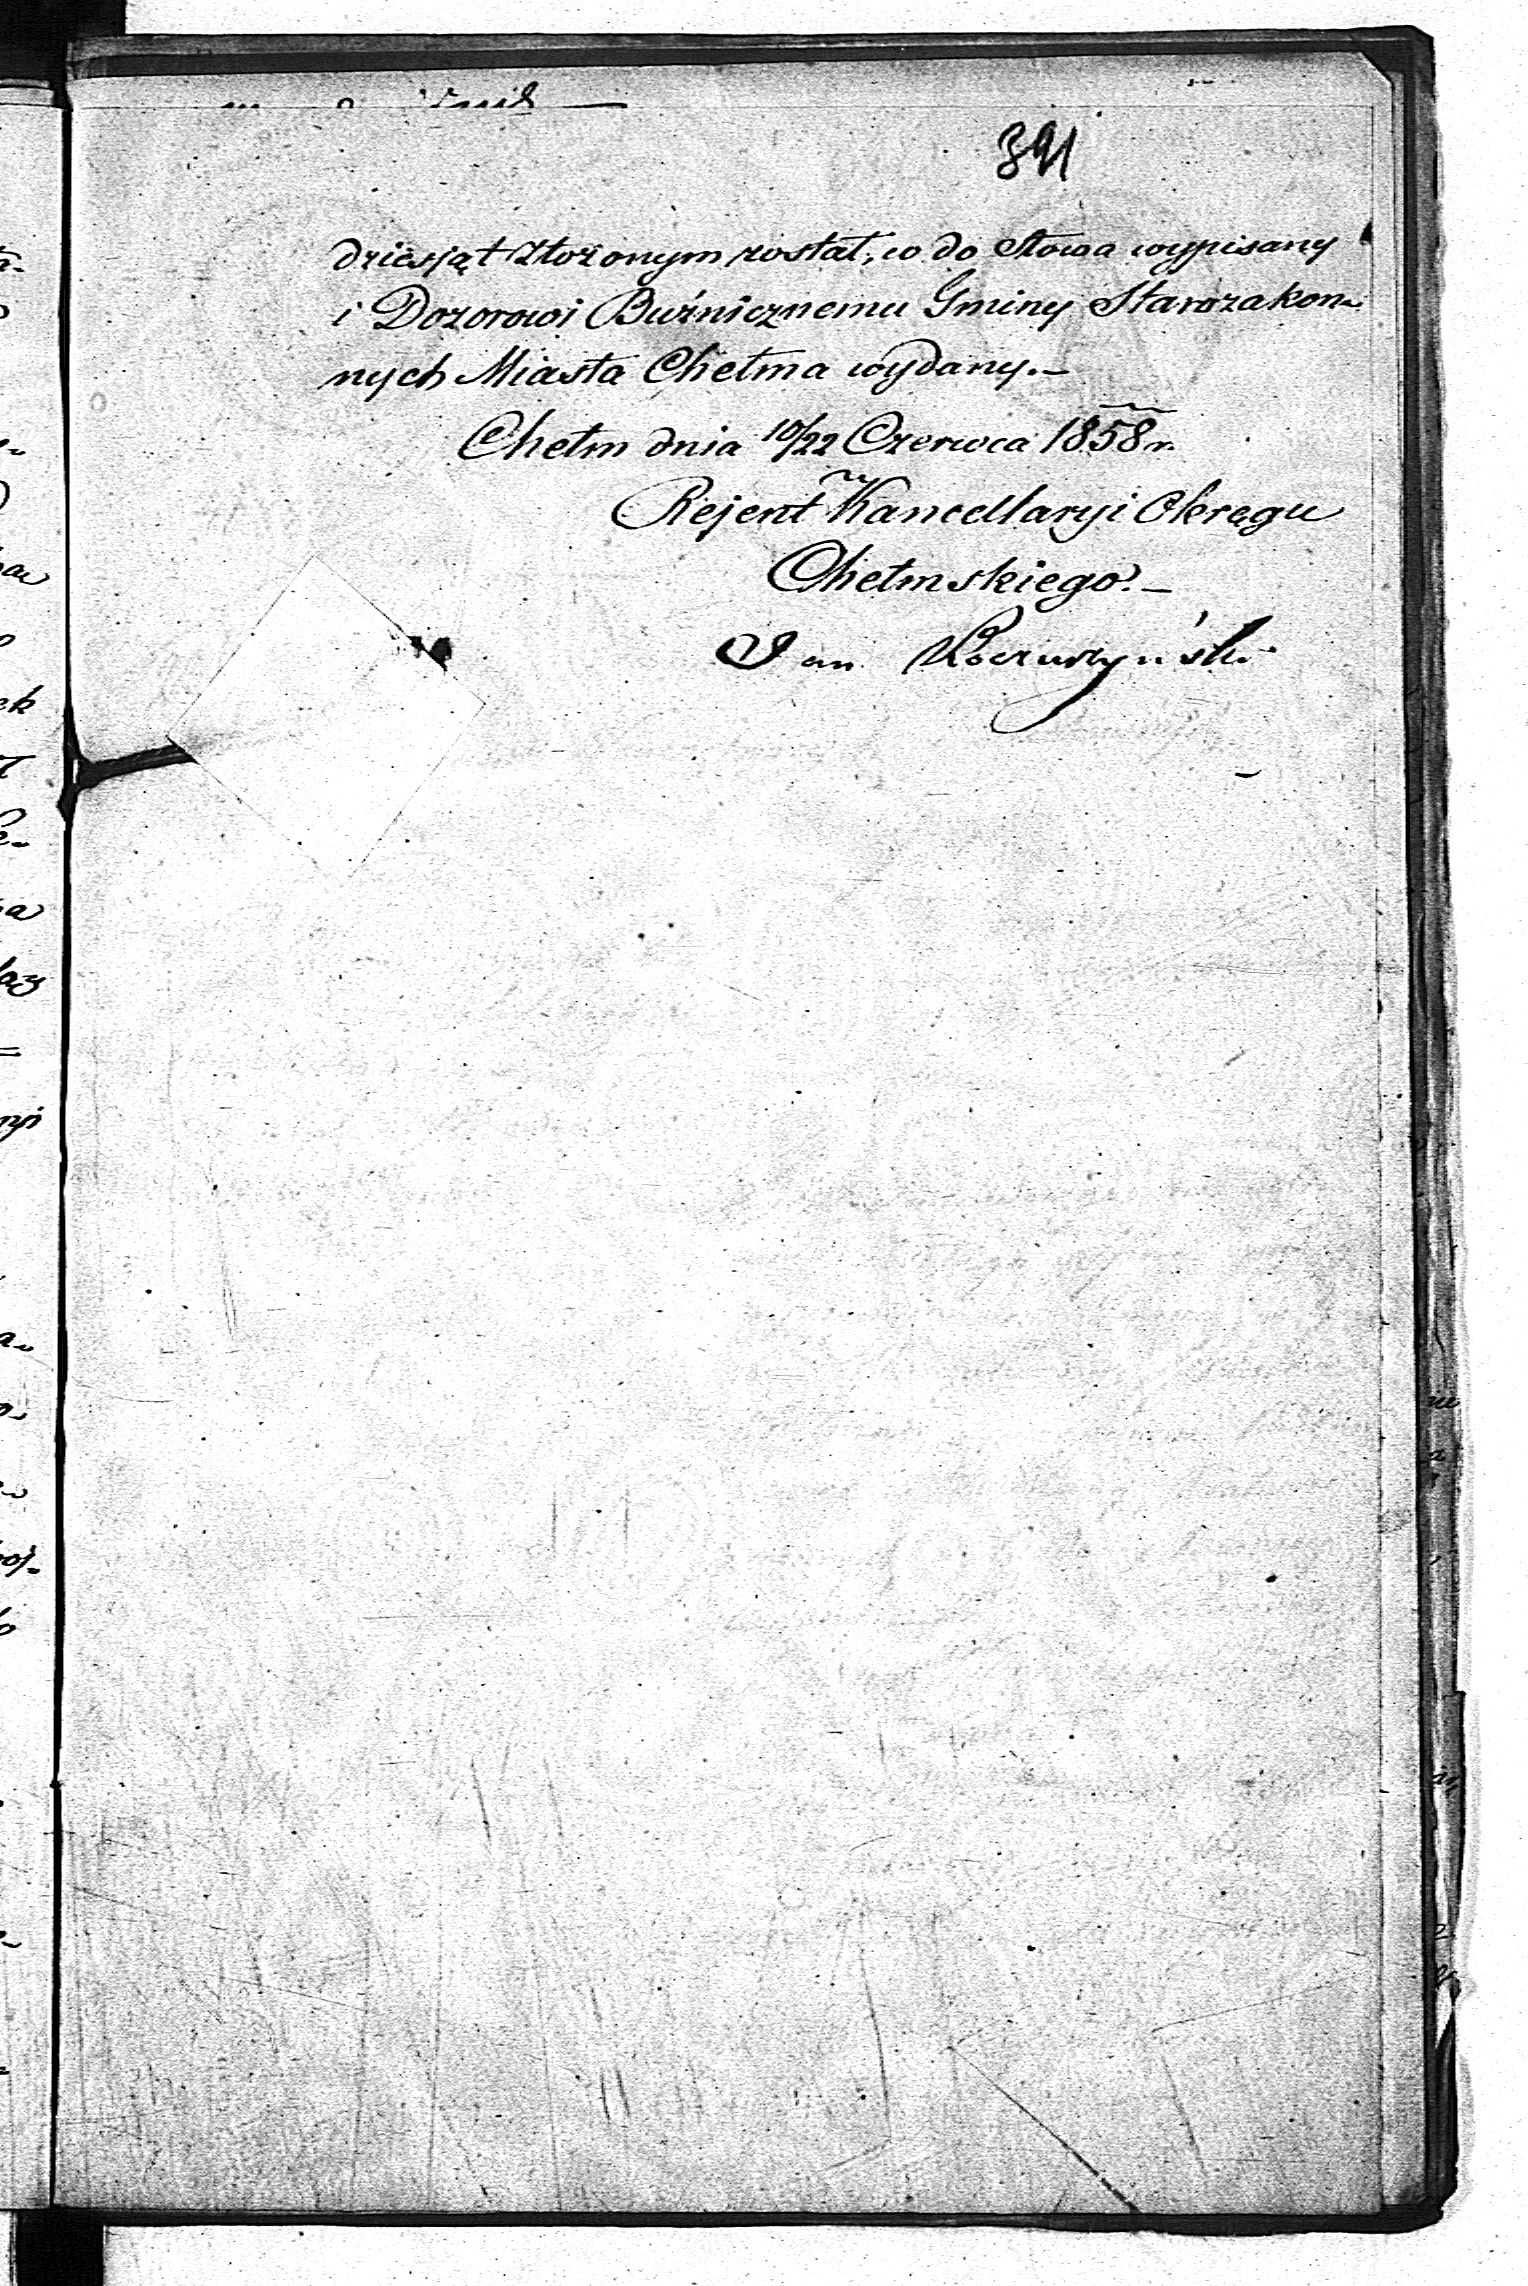 391
dziesiąt złożonym został, co do słowa wypisany
i Dozorowi Buźnicznemu Gminy Starozakon-
nych Miasta Chełma wydany.–
Chełm dnia 10/22 Czerwca 1858 r.
Rejent Kancellaryi Okręgu
Chełmskiego.–
Jan